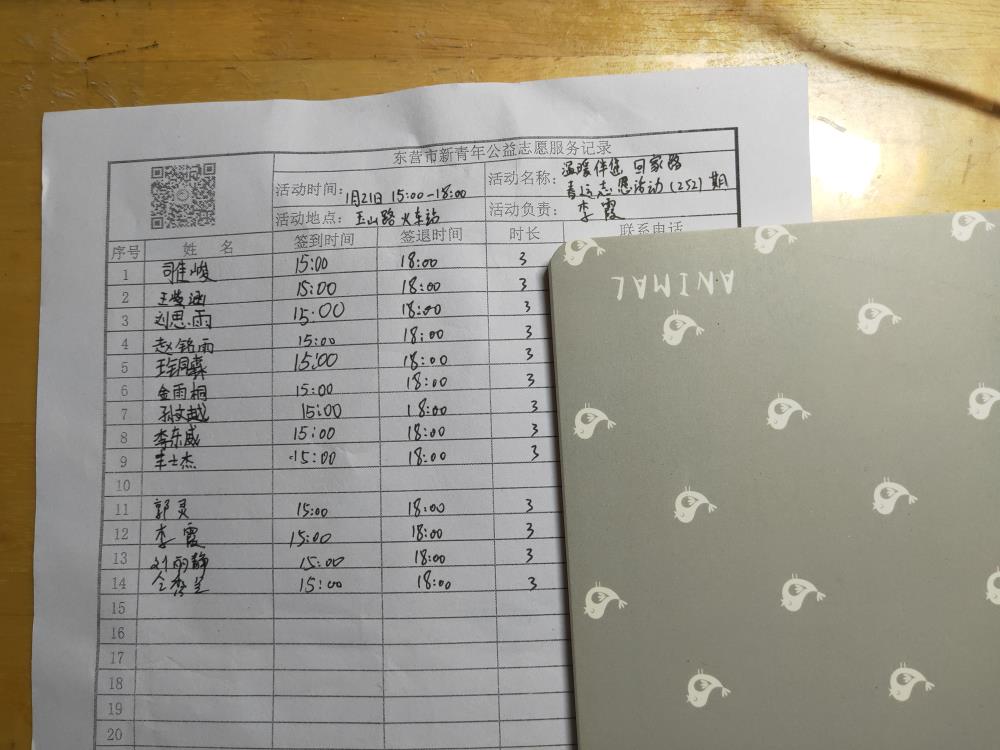 东营市新青年公益志愿服务记录
活动时间：1月21日 15:00-18:00 活动名称：温暖伴您 回家路
春运志愿活动（252）期
活动地点：玉山路火车站 活动负责：李霞
序号 姓 名 签到时间 签退时间 时长 联系电话
1 司佳峻 15:00 18:00 3
2 15:00 18:00 3
3 刘思雨 15:00 18:00 3
4 赵铭雨 15:00 18:00 3
5 15:00 18:00 3
6 金雨桐 15:00 18:00 3
7 孙文越 15:00 18:00 3
8 李东威 15:00 18:00 3
9 15:00 18:00 3
10
11 郭灵 15:00 18:00 3
12 李霞 15:00 18:00 3
13 刘丽静 15:00 18:00 3
14 15:00 18:00 3
15
16
17
18
19
20
ANIMAL